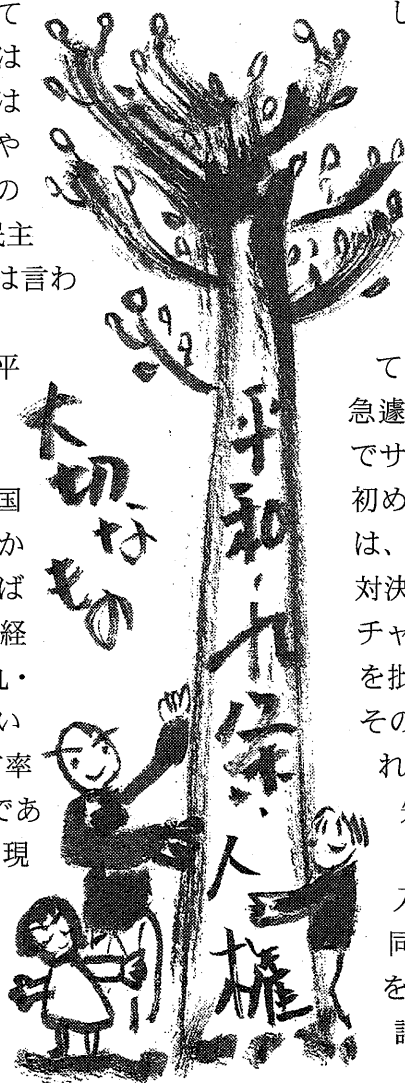 て
は
は
や
の
民主
は言わ
平
国
か
ば
経
乱・
い
率
であ
現
大切な
もの
平和・九条・人権
し
て
急遽
でサ
初め
は、
対決
チャ
を批
その
れ
同
を